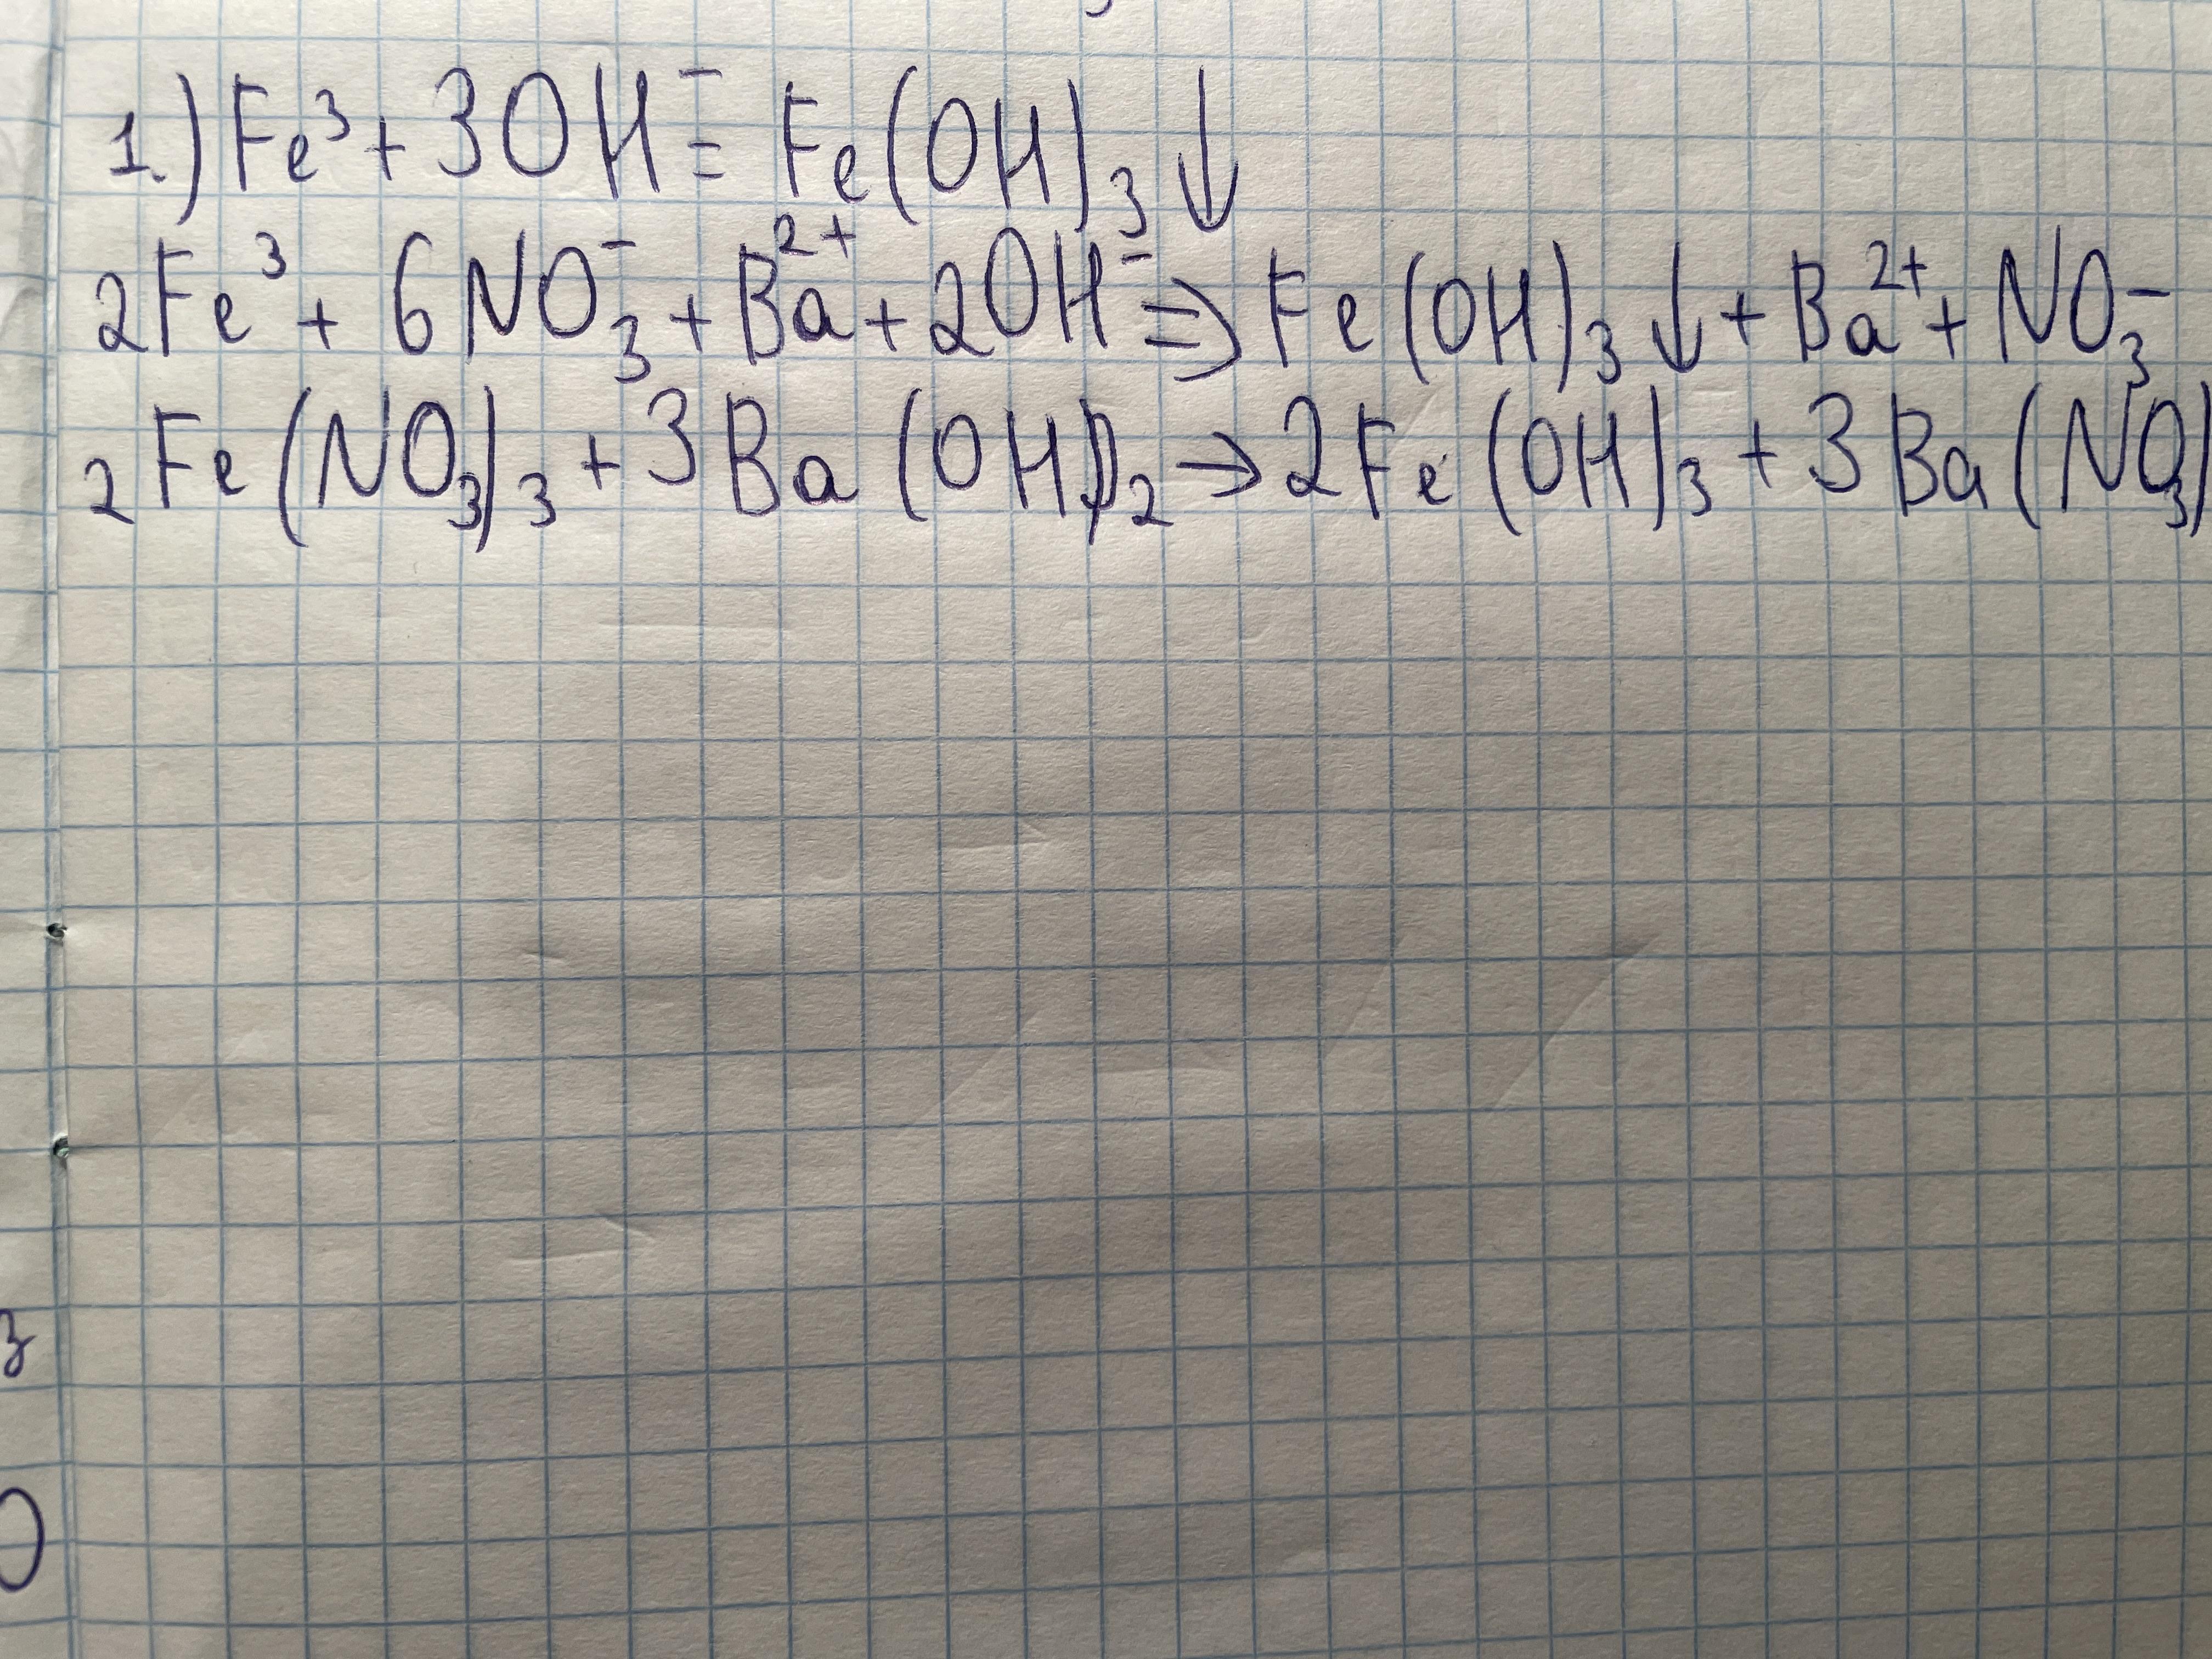 1.) Fe³ + 3OH⁻ = Fe(OH)₃ ↓
2Fe³ + 6NO₃⁻ + Ba²⁺ + 2OH⁻ ⇒ Fe(OH)₃ ↓ + Ba²⁺ + NO₃⁻
2Fe(NO₃)₃ + 3Ba(OH)₂ → 2Fe(OH)₃ + 3Ba(NO₃)